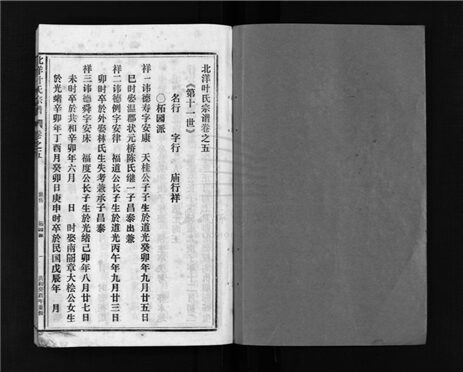 北洋叶氏宗谱卷之五
《第十一世》
名行 字行 庙行祥
〇柘园派
祥一讳德寿字安康 天桂公子子生於道光癸卯年九月廿五日
巳时娶温郡状元桥陈氏继一子昌泰出兼
祥二讳德例字安律 福道公长子生於道光丙午年九月廿三日
卯时卒於外娶林氏生失考兼承子昌泰
祥三讳德舜字安床 福度公长子生於光绪己卯年八月廿七日
未时卒於共和辛卯年六月 日 时娶南韶章大桧公女生
於光绪辛卯年丁酉月癸卯日庚申时卒於民国戊辰年 月
北洋叶氏宗谱 卷之五